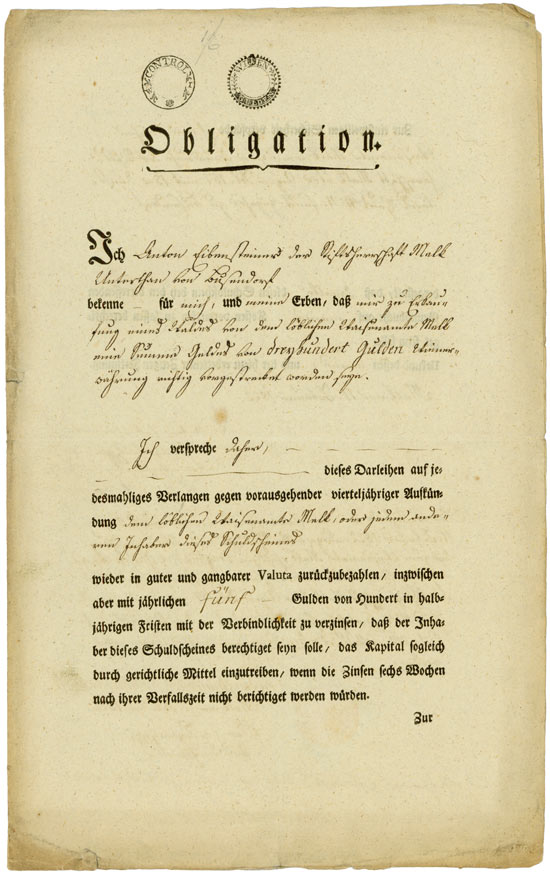 16
CONTROL
WAISEN
Obligation.
Ich Anton Eibensteiner der Stiftsherrschaft Melk
Unterthan von Busendorf
bekenne – für mich, und meine Erben, daß mir zu Erkau-
fung eines Waldes von dem löblichen Waisenamte Melk
eine Summe Geldes von dreyhundert Gulden Wiener-
währung richtig vorgestrecket worden seye.
Ich verspreche daher,
dieses Darleihen auf je-
desmahliges Verlangen gegen vorausgehender vierteljähriger Aufkün-
dung dem löblichen Waisenamte Melk, oder jedem ande-
ren Inhaber dieses Schuldscheines
wieder in guter und gangbarer Valuta zurückzubezahlen, inzwischen
aber mit jährlichen fünf Gulden von Hundert in halb-
jährigen Fristen mit der Verbindlichkeit zu verzinsen, daß der Inha-
ber dieses Schuldscheines berechtiget seyn solle, das Kapital sogleich
durch gerichtliche Mittel einzutreiben, wenn die Zinsen sechs Wochen
nach ihrer Verfallszeit nicht berichtiget werden würden.
Zur